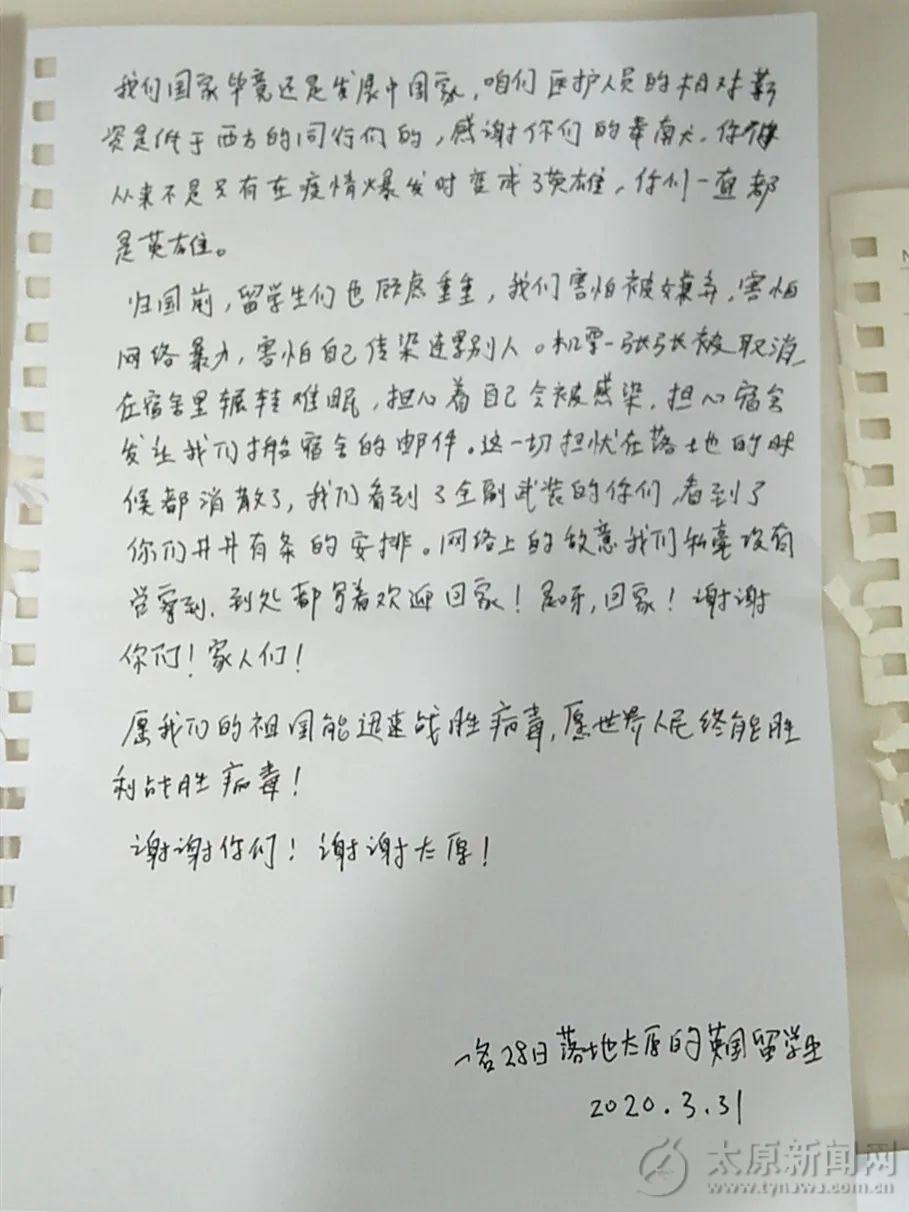 我们国家毕竟还是发展中国家,咱们医护人员的相对薪
资是低于西方的同行们的,感谢你们的奉献,你们
从来不是只有在疫情爆发时变成了英雄,你们一直都
是英雄。
归国前,留学生们也顾虑重重,我们害怕被嫌弃,害怕
网络暴力,害怕自己传染连累别人。机票一张张被取消,
在宿舍里辗转难眠,担心着自己会被感染,担心宿舍
发让我们搬宿舍的邮件。这一切担忧在落地的时
候都消散了,我们看到了全副武装的你们,看到了
你们井井有条的安排。网络上的敌意我们私毫没有
觉察到,到处都写着欢迎回家!是呀,回家!谢谢
你们!家人们!
愿我们的祖国能迅速战胜病毒,愿世界人民终能胜
利战胜病毒!
谢谢你们!谢谢太原!
一名28日落地太原的英国留学生
2020.3.31
太原新闻网
www.tynews.com.cn